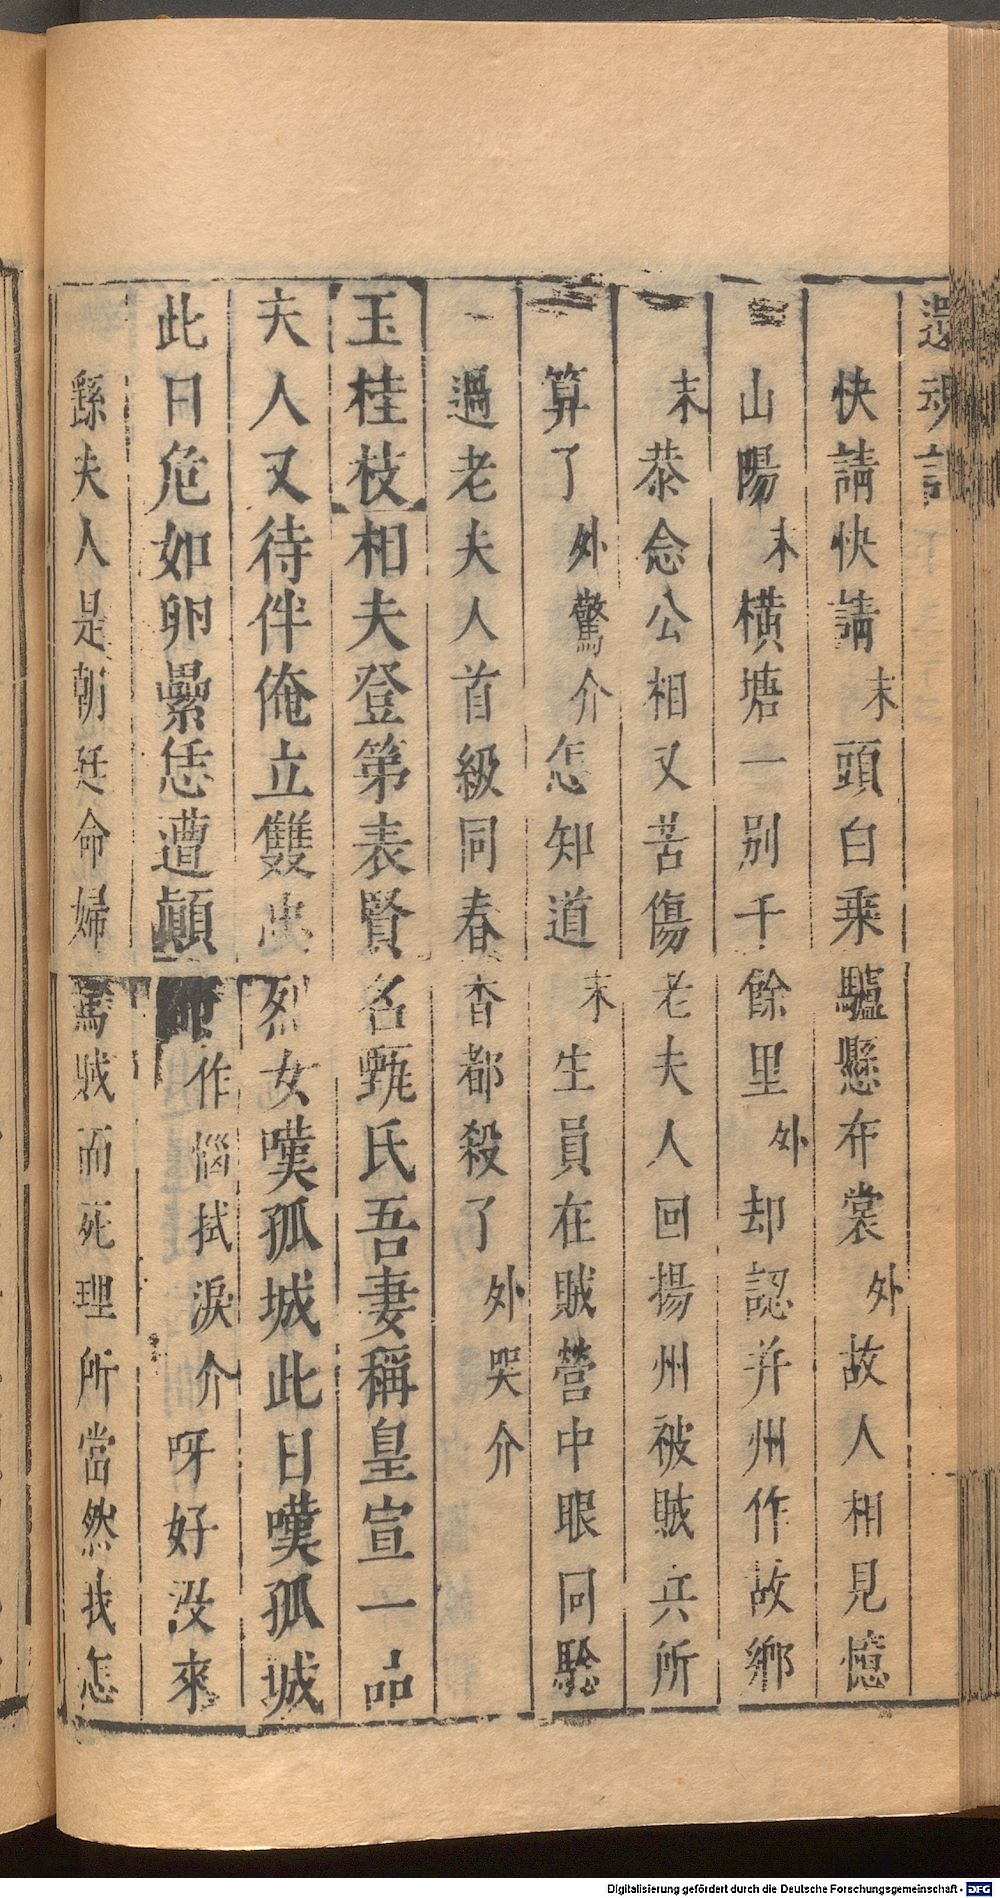 還魂記
快請快請末頭白乘驢懸布裳外故人相見憶
山陽末橫塘一別千餘里外却認并州作故鄉
末恭念公相又苦傷老夫人回揚州被賊兵所
算了外驚介怎知道末生員在賊營中眼同驗
過老夫人首級同春香都殺了外哭介
玉桂枝相夫登第表賢名甄氏吾妻稱皇宣一品
夫人又待伴俺立雙忠烈女嘆孤城此日嘆孤城
此日危如卵纍恁遭顛作惱拭淚介呀好沒來
繇夫人是朝廷命婦罵賊而死理所當然我怎
Digitalisierung gefördert durch die Deutsche Forschungsgemeinschaft - DFG